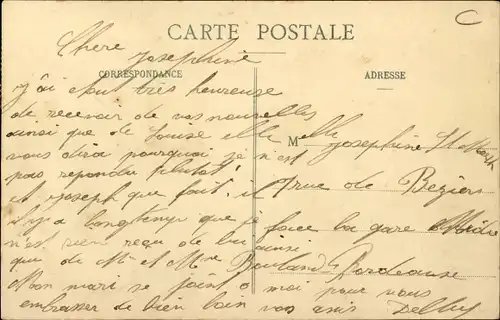 CARTE POSTALE
C
Chere Josephine
CORRESPONDANCE
ADRESSE
j'ai etait très heureuse
de recevoir de vos nouvelles
ainsi que de Louise elle
vous dira pourquoi je n'est
pas repondu plutot
et joseph que fait il
il y a longtemps que je
n'est rien reçu de lui ainsi
que de Mr et Mme
Mon mari se joint a moi pour vous
embrasser de bien loin vos amis Delluy
Melle Josephine
rue de Béziers
face la gare
Bordeause